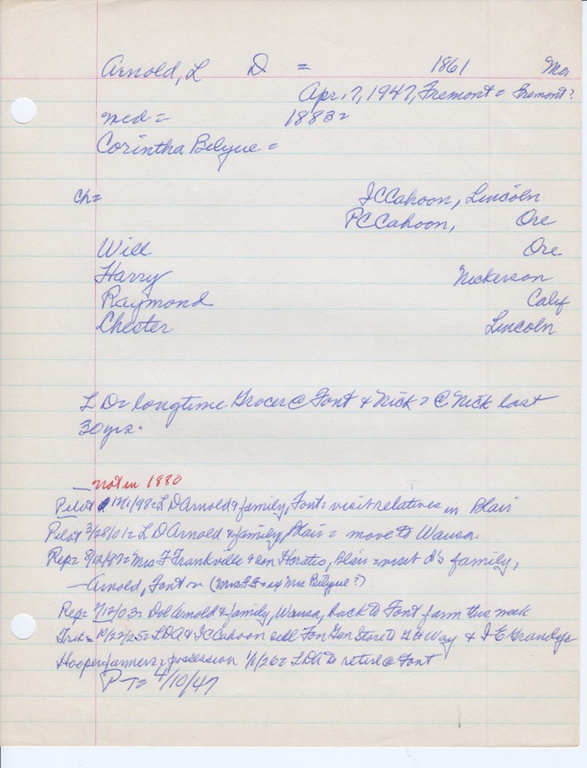 Arnold, L D = 1861 Mo
Apr. 7, 1947, Fremont = Fremont?
med = 1883=
Corintha Belyue =
Ch= J C Cahoon, Lincoln
P C Cahoon, Ore
Will Ore
Harry Nickerson
Raymond Calif
Chester Lincoln
L D= longtime Grocer @ Font & Nick = @ Nick last
30 yrs.
— not in 1880
Pilot /98= L D Arnold & family, Font = visit relatives in Blair
Pilot 3/28/01= L D Arnold & family, Blair = move to Wausa.
Rep= 8/12/97= Mrs F Frankville & son Horatio, Blair = visit family,
— Arnold, Font = (Mrs F F = Mrs Belyue?)
Rep= 7/12/03= Dell Arnold & family, Wausa, back to Font farm this week
10/22/25= L D A & J C Cahoon sell Fon Gen Store to Way &
Hooper farmers; possession 1/1/26= L D A to retire @ Font
P T= 4/10/47